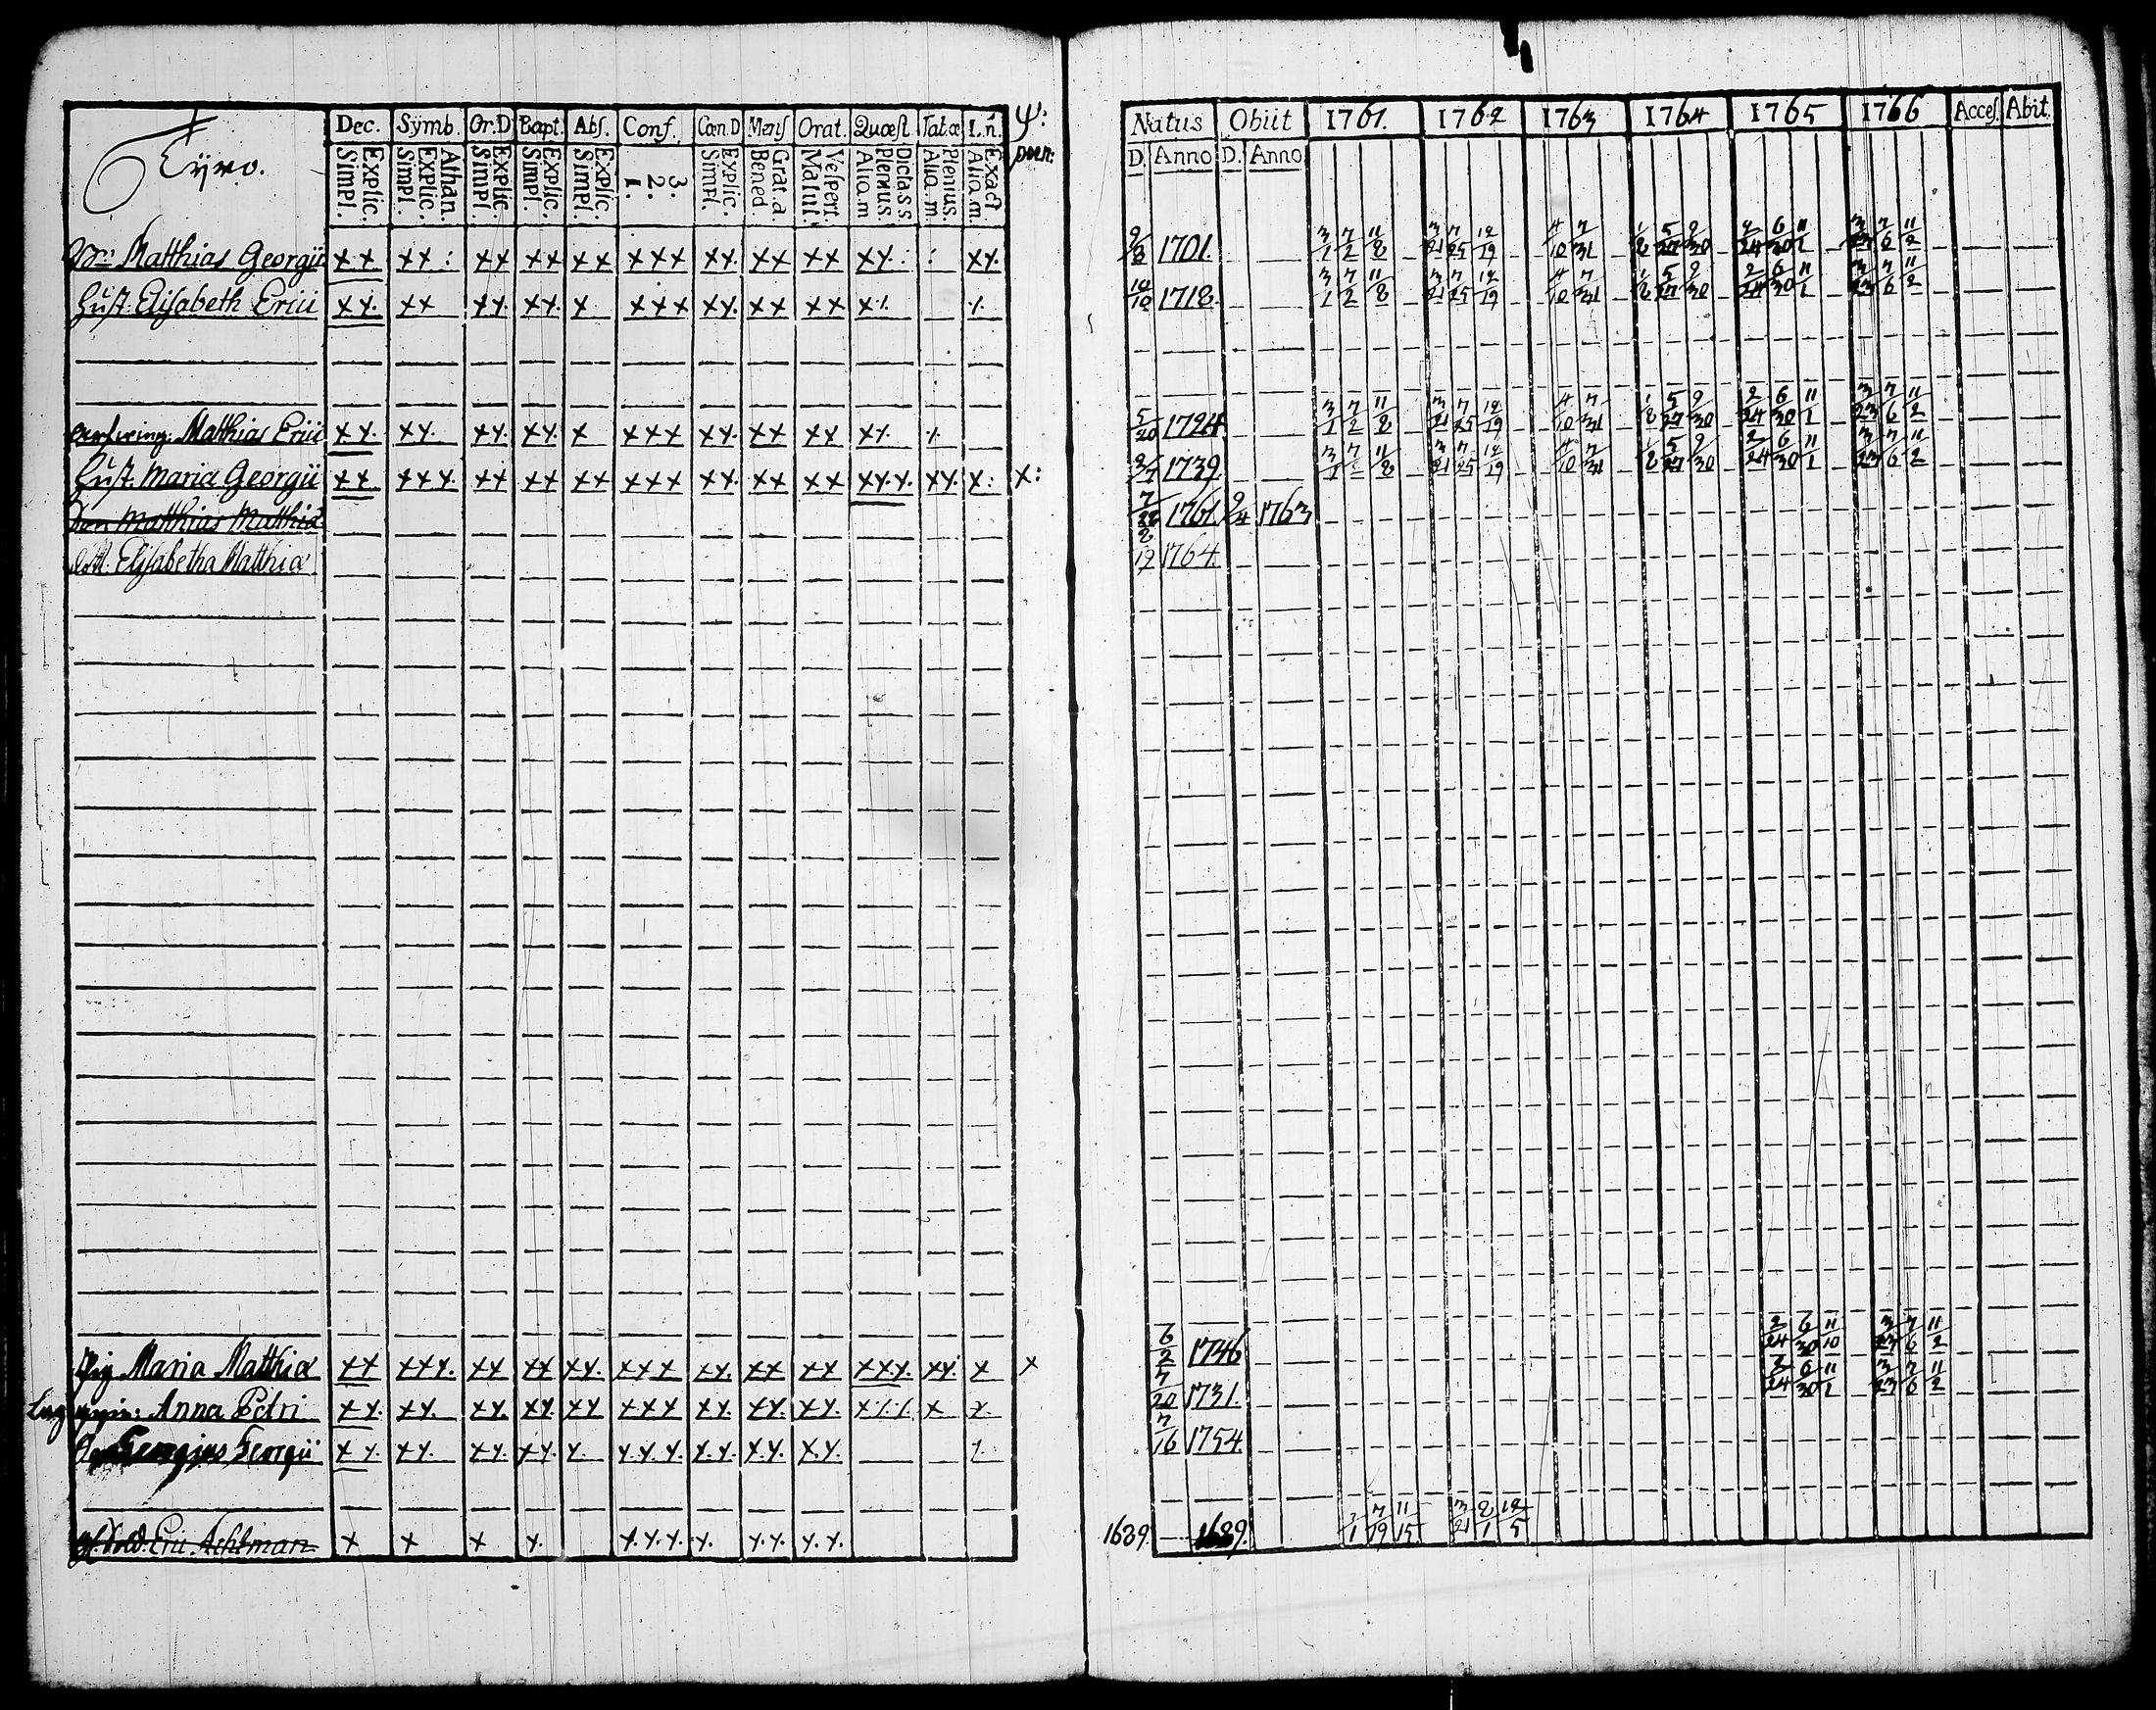 Dec. Symb. Or.D Bapt. Abs. Conf. Cœn.D Mens Orat. Quæst. Tab.œ I.ñ. ψ:
Explic. Simpl. Athan. Explic. Simpl. Explic. Simpl. Explic. Simpl. Explic. Simpl. 3. 2. 1. Explic. Simpl. Grat.a Bened. Vespert. Matut. Dicta.s.s. Plenius. Aliq.m Plenius. Aliq.m. Exact. Aliq.m. pœn:
Tÿro.
Matthias Georgii xx xx: xx xx xx xxx xx. xx xx xx. : : xx.
Hust. Elisabeth Erici xx. xx xx. xx. x xxx xx. xx xx x
Matthias Erici xx. xx. xx. xx. x xxx xx. xx xx xx.
Hust. Maria Georgii xx xxx. xx xx xx xxx xx. xx xx xx.x. xx. x: x:
Matthias Matthiæ
Elisabetha Matthiæ
Pig Maria Matthiæ xx xxx. xx xx xx. xxx xx. xx xx xxx. xx. x x
Anna Petri xx. xx. xx. xx. xx xxx xx. xx. xx. x x.
Georgius Georgii x x. xx. xx. xx. x. x.x.x. x.x. x.x. x.x.
Sold. Eric x x x x. x.x.x. x. x.x. x.x.
Natus Obiit 1761. 1762 1763 1764 1765 1766 Acces. Abit.
D. Anno D. Anno
9/8 1701. 3/1 7/2 11/8 3/21 7/25 12/19 4/10 7/31 1/8 5/27 9/30 2/24 6/30 11/1 3/23 7/6 11/2
10/10 1718. 3/1 7/2 11/8 3/21 7/25 12/19 4/10 7/31 1/8 5/27 9/30 2/24 6/30 11/1 3/23 7/6 11/2
5/20 1724. 3/1 7/2 11/8 3/21 7/25 12/19 4/10 7/31 1/8 5/27 9/30 2/24 6/30 11/1 3/23 7/6 11/2
9/7 1739. 3/1 7/2 11/8 3/21 7/25 12/19 4/10 7/31 1/8 5/27 9/30 2/24 6/30 11/1 3/23 7/6 11/2
7/22 1761. 9/4 1763
8/19 1764.
6/2 1746 2/24 6/30 11/10 3/23 7/6 11/2
7/20 1731. 2/24 6/30 11/1 3/23 7/6 11/2
7/16 1754.
1689. 1689. 3/1 7/19 11/15 3/21 8/1 12/5